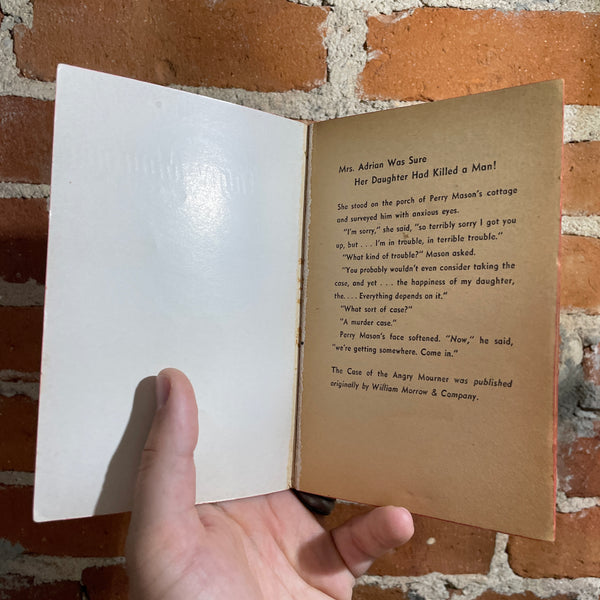 Mrs. Adrian Was Sure
Her Daughter Had Killed a Man!
She stood on the porch of Perry Mason's cottage
and surveyed him with anxious eyes.
"I'm sorry," she said, "so terribly sorry I got you
up, but . . . I'm in trouble, in terrible trouble."
"What kind of trouble?" Mason asked.
"You probably wouldn't even consider taking the
case, and yet . . . the happiness of my daughter,
the. . . . Everything depends on it."
"What sort of case?"
"A murder case."
Perry Mason's face softened. "Now," he said,
"we're getting somewhere. Come in."
The Case of the Angry Mourner was published
originally by William Morrow & Company.